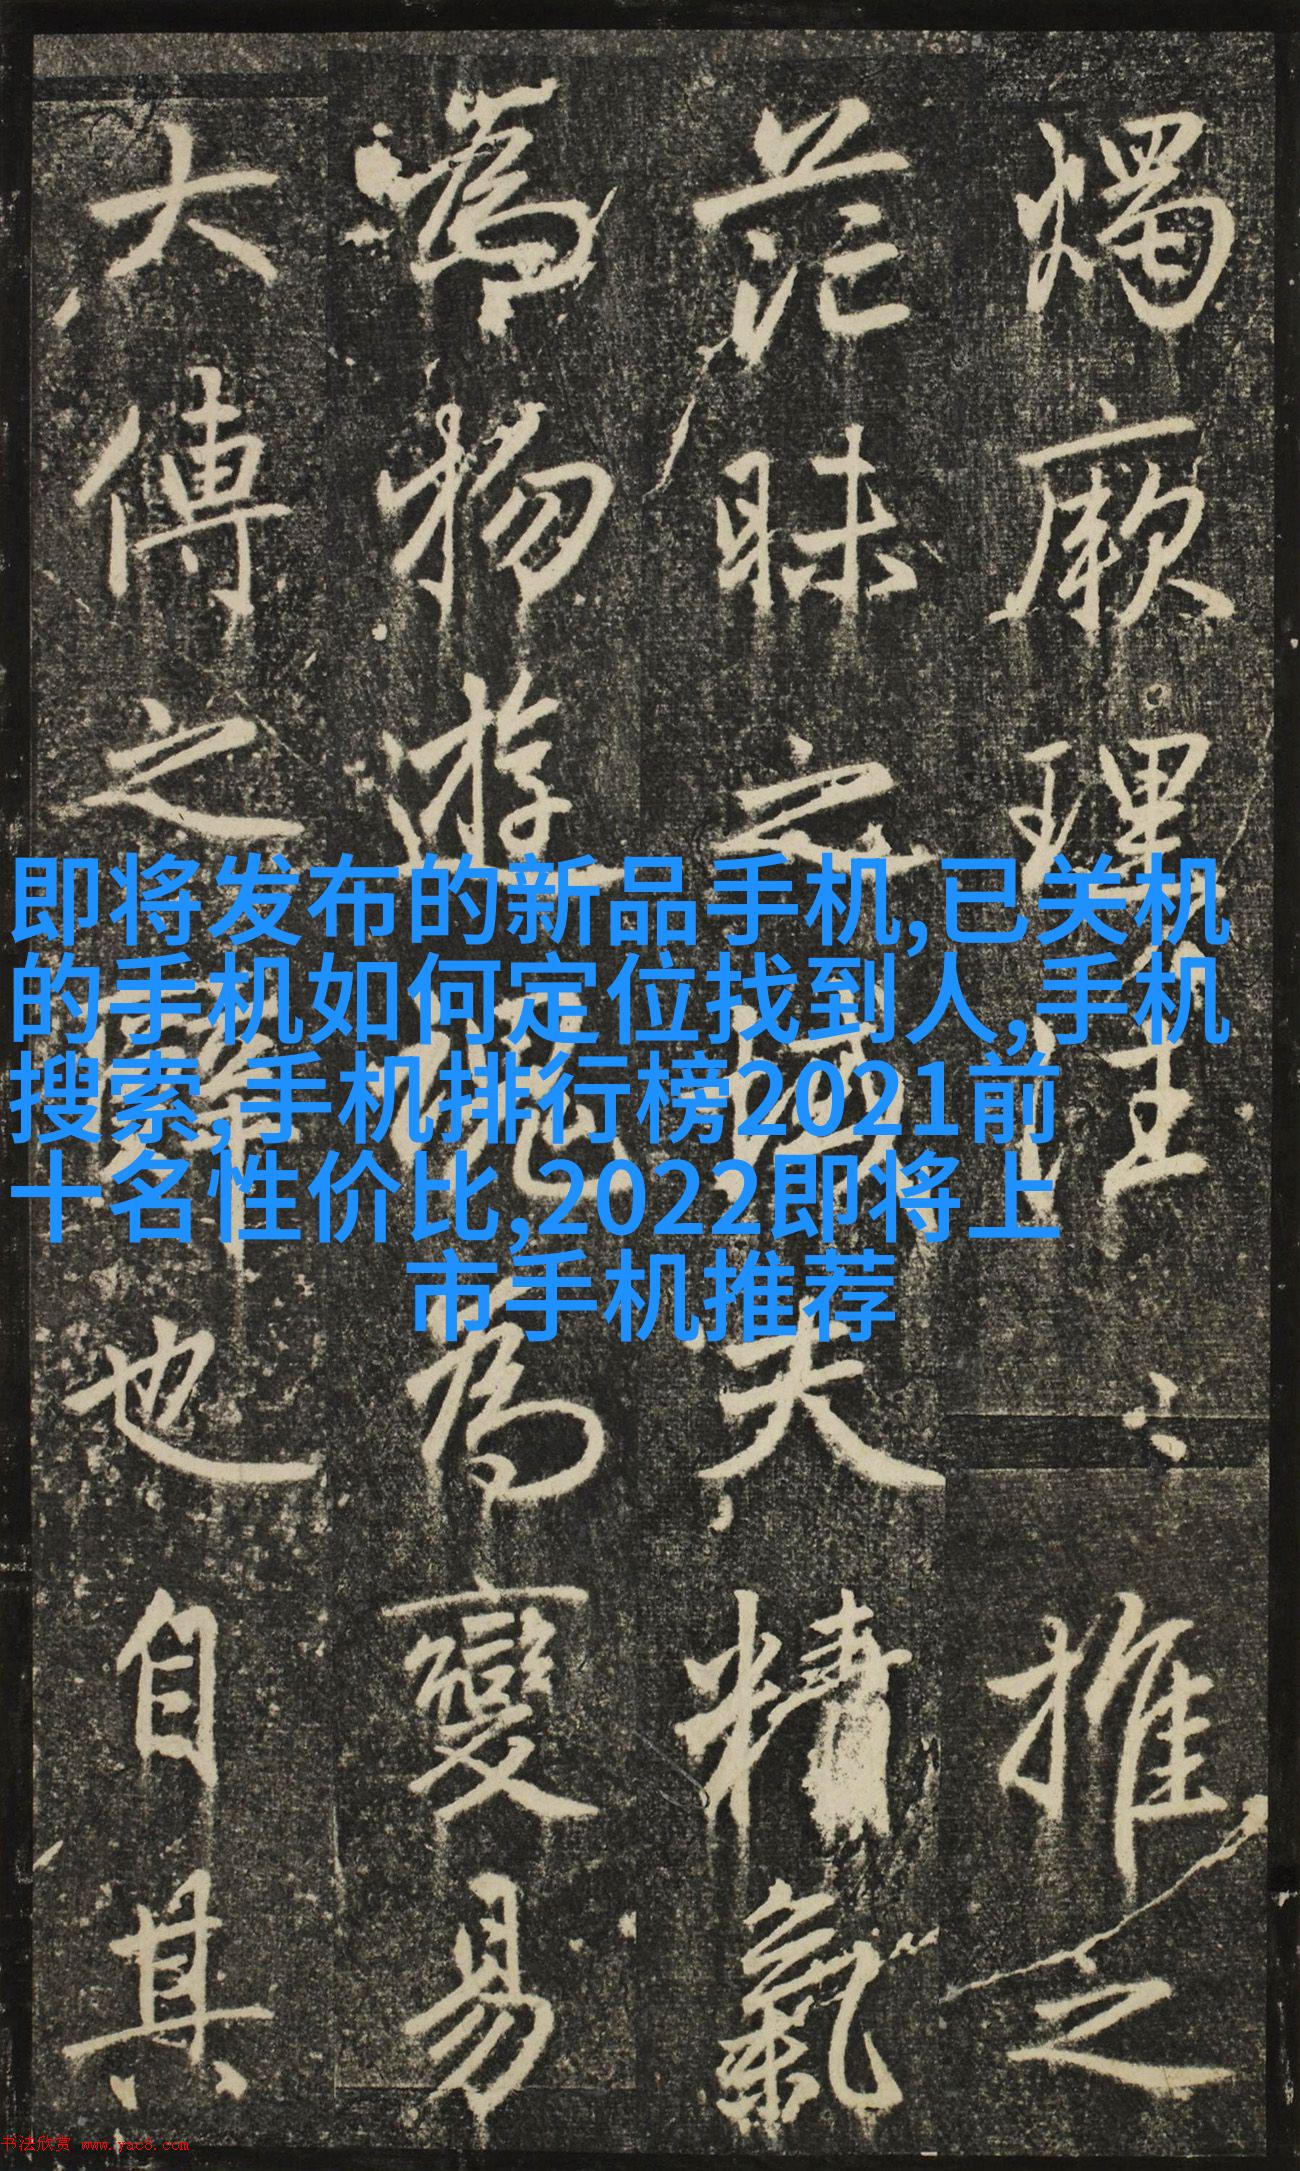 燭厥理推之
茫昧之夫精氣
為物遊魂為變易
大傳之辭也自其
即将发布的新品手机,已关机
的手机如何定位找到人,手机
搜索,手机排行榜2021前
十名性价比,2022即将上
市手机推荐
书法欣赏 www.yac8.com